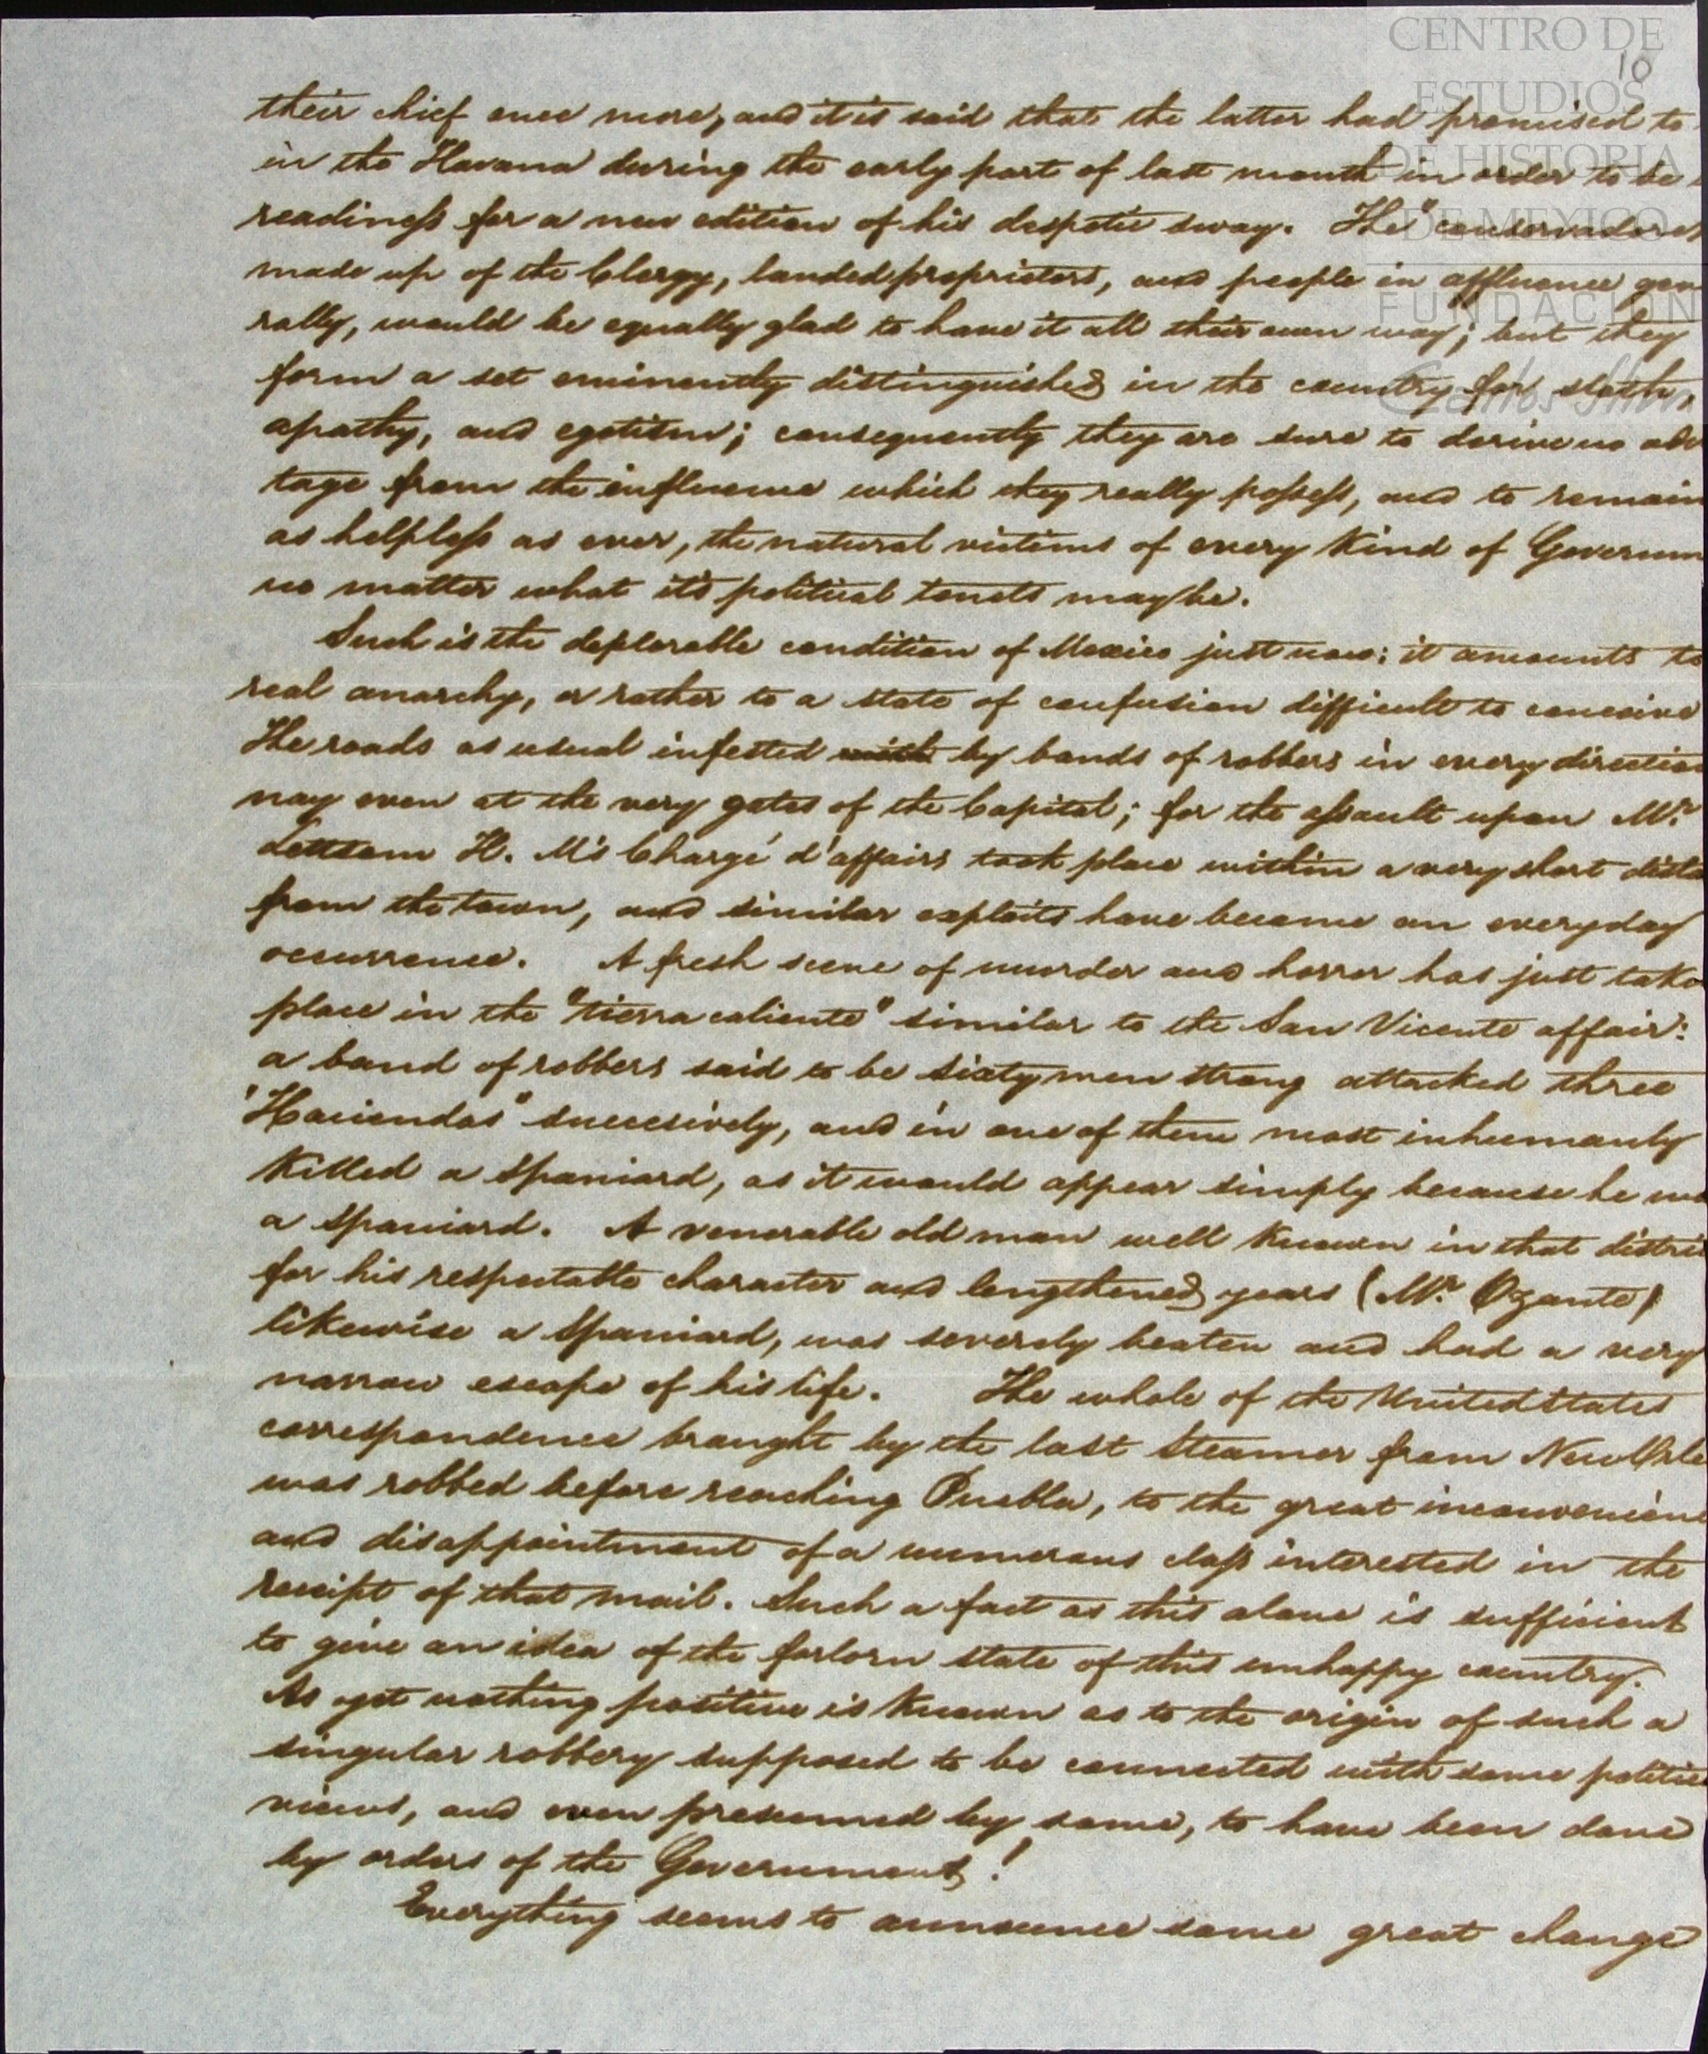 CENTRO DE
ESTUDIOS
DE HISTORIA
DE MEXICO
FUNDACION
Carlos Slim
10
their chief once more, and it is said that the latter had promised to
in the Havana during the early part of last month in order to be
readiness for a new edition of his despotic sway. The "conservadores
made up of the Clergy, landed proprietors, and people in affluence gen
rally, would be equally glad to have it all their own way; but they
form a set eminently distinguished in the country for sloth,
apathy, and egotism; consequently they are sure to derive no adv
tage from the influence which they really possess, and to remain
as helpless as ever, the natural victims of every kind of Governm
no matter what it's political tenets may be.
Such is the deplorable condition of Mexico just now: it amounts to
real anarchy, or rather to a state of confusion difficult to conceive
The roads as usual infested with by bands of robbers in every direction
nay even at the very gates of the Capital; for the assault upon Mr.
Lettsom H. M's Chargé d'affairs took place within a very short dista
from the town, and similar exploits have become an everyday
occurrence. A fresh scene of murder and horror has just take
place in the "tierra caliente" similar to the San Vicente affair:
a band of robbers said to be sixty men strong attacked three
"Haciendas" succesively, and in one of them most inhumanly
killed a Spaniard, as it would appear simply because he wa
a Spaniard. A venerable old man well known in that distri
for his respectable character and lengthened years (Mr. Ozante)
likewise a Spaniard, was severely beaten and had a very
narrow escape of his life. The whole of the United States
correspondence brought by the last Steamer from New Orle
was robbed before reaching Puebla, to the great inconvenienc
and disappointment of a numerous class interested in the
receipt of that mail. Such a fact as this alone is sufficient
to give an idea of the forlorn state of this unhappy country.
As yet nothing positive is known as to the origin of such a
singular robbery supposed to be connected with some politic
views, and even presumed by some, to have been done
by orders of the Government!
Everything seems to announce some great change